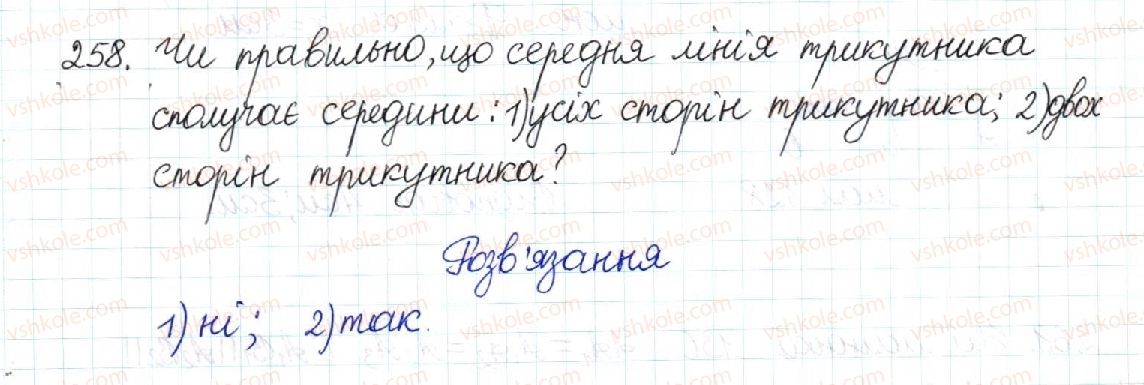 258. Чи правильно, що середня лінія трикутника
сполучає середини: 1) усіх сторін трикутника; 2) двох
сторін трикутника?
Розв'язання
1) ні; 2) так.